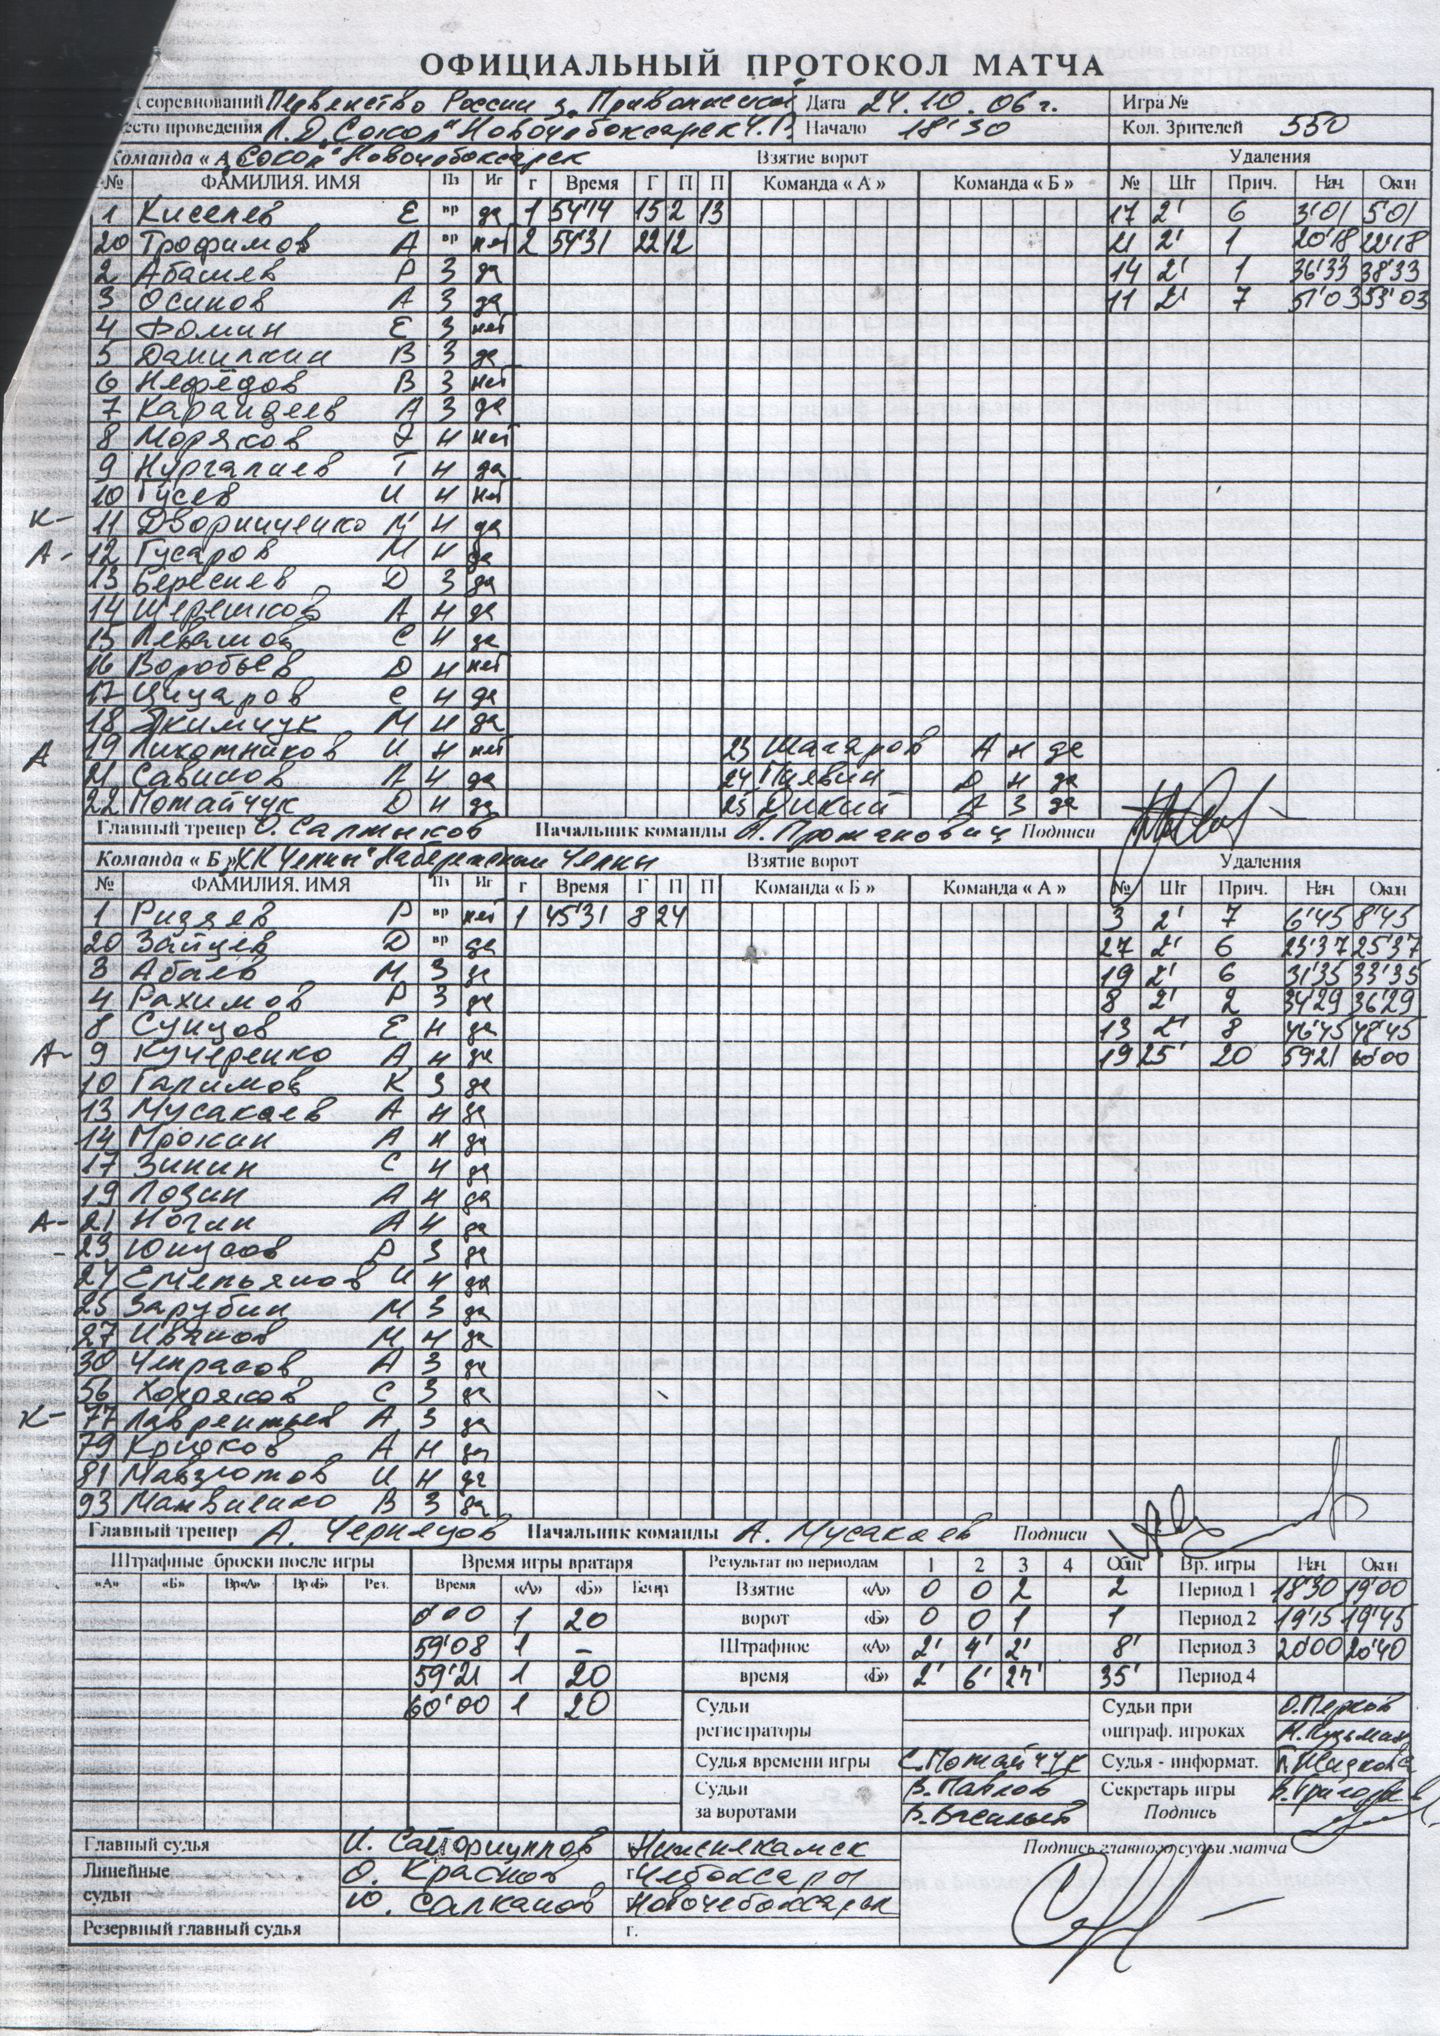 ОФИЦИАЛЬНЫЙ ПРОТОКОЛ МАТЧА
соревнований Первенство России з. Приволжская Дата 24.10.06г. Игра №
место проведения Л.Д. "Сокол" Новочебоксарск Ч.Р. Начало 18'30 Кол. Зрителей 550
Команда «А» "Сокол" Новочебоксарск Взятие ворот Удаления
№ ФАМИЛИЯ. ИМЯ Пз Иг г Время Г П П Команда «А» Команда «Б» № Шт Прич. Нач. Окон
1 Киселев Е вр да 1 54'14 15 2 13 17 2' 6 3'01 5'01
20 Трофимов А вр нет 2 54'31 22 12 21 2' 1 20'18 22'18
2 Абашев Р З да 14 2' 1 36'33 38'33
3 Осипов А З да 11 2' 7 51'03 53'03
4 Фомин Е З нет
5 Данилкин В З да
6 Нефёдов В З нет
7 Карандеев А З да
8 Моряков Н нет
9 Нургалиев Т Н да
10 Гусев И Н нет
К- 11 Дворниченко М Н да
А- 12 Гусаров М Н да
13 Береснев Д З да
14 Шерешков А Н да
15 Левашов С Н да
16 Воробьев Д Н нет
17 Цицаров С Н да
18 Якимчук М Н да
19 Лихотников И Н нет 23 Шагаров А Н да
А 21 Савинов А Н да 24 Пиявин Д Н да
22 Потайчук О Н да 25 Дикий А З да
Главный тренер О. Салтыков Начальник команды А. Протанович Подписи
Команда «Б» ХК "Челны" Набережные Челны Взятие ворот Удаления
№ ФАМИЛИЯ. ИМЯ Пз Иг г Время Г П П Команда «Б» Команда «А» № Шт Прич. Нач. Окон
1 Ризяев Р вр нет 1 45'31 8 24 3 2' 7 6'45 8'45
20 Зайцев Д вр да 27 2' 6 23'37 25'37
3 Абаев М З да 19 2' 6 31'35 33'35
4 Рахимов Р З да 8 2' 2 34'29 36'29
8 Сунцов Е Н да 13 2' 8 46'45 48'45
А- 9 Кучеренко А Н да 19 25' 20 59'21 60'00
10 Галимов К З да
13 Мусакаев А Н да
14 Пронин А Н да
17 Зинин С Н да
19 Лозин А Н да
А- 21 Ногин А Н да
23 Юнусов Р З да
24 Емельянов И Н да
25 Зарубин М З да
27 Иванов М Н да
30 Чепрасов А З да
56 Хохряков С З да
К- 77 Лаврентьев А З да
79 Крюков А Н да
81 Мавзютов И Н да
93 Матвиенко В З да
Главный тренер А. Чернецов Начальник команды А. Мусакаев Подписи
Штрафные броски после игры Время игры вратаря Результат по периодам 1 2 3 4 Общ Вр. игры Нач. Окон
«А» «Б» Вр«А» Вр«Б» Рез. Время «А» «Б» Взятие «А» 0 0 2 2 Период 1 18'30 19'00
0'00 1 20 ворот «Б» 0 0 1 1 Период 2 19'15 19'45
59'08 1 – Штрафное «А» 2' 4' 2' 8' Период 3 20'00 20'40
59'21 1 20 время «Б» 2' 6' 27' 35' Период 4
60'00 1 20 Судьи регистраторы Судьи при оштраф. игроках О. Перков
Судья времени игры С. Потайчук Судья - информат.
Судьи за воротами В. Павлов Секретарь игры
В. Васильев Подпись
Главный судья И. Сайфуллин Нижнекамск Подпись главного судьи матча
Линейные О. Краснов г. Чебоксары
судьи Ю. Салканов Новочебоксарск
Резервный главный судья г.